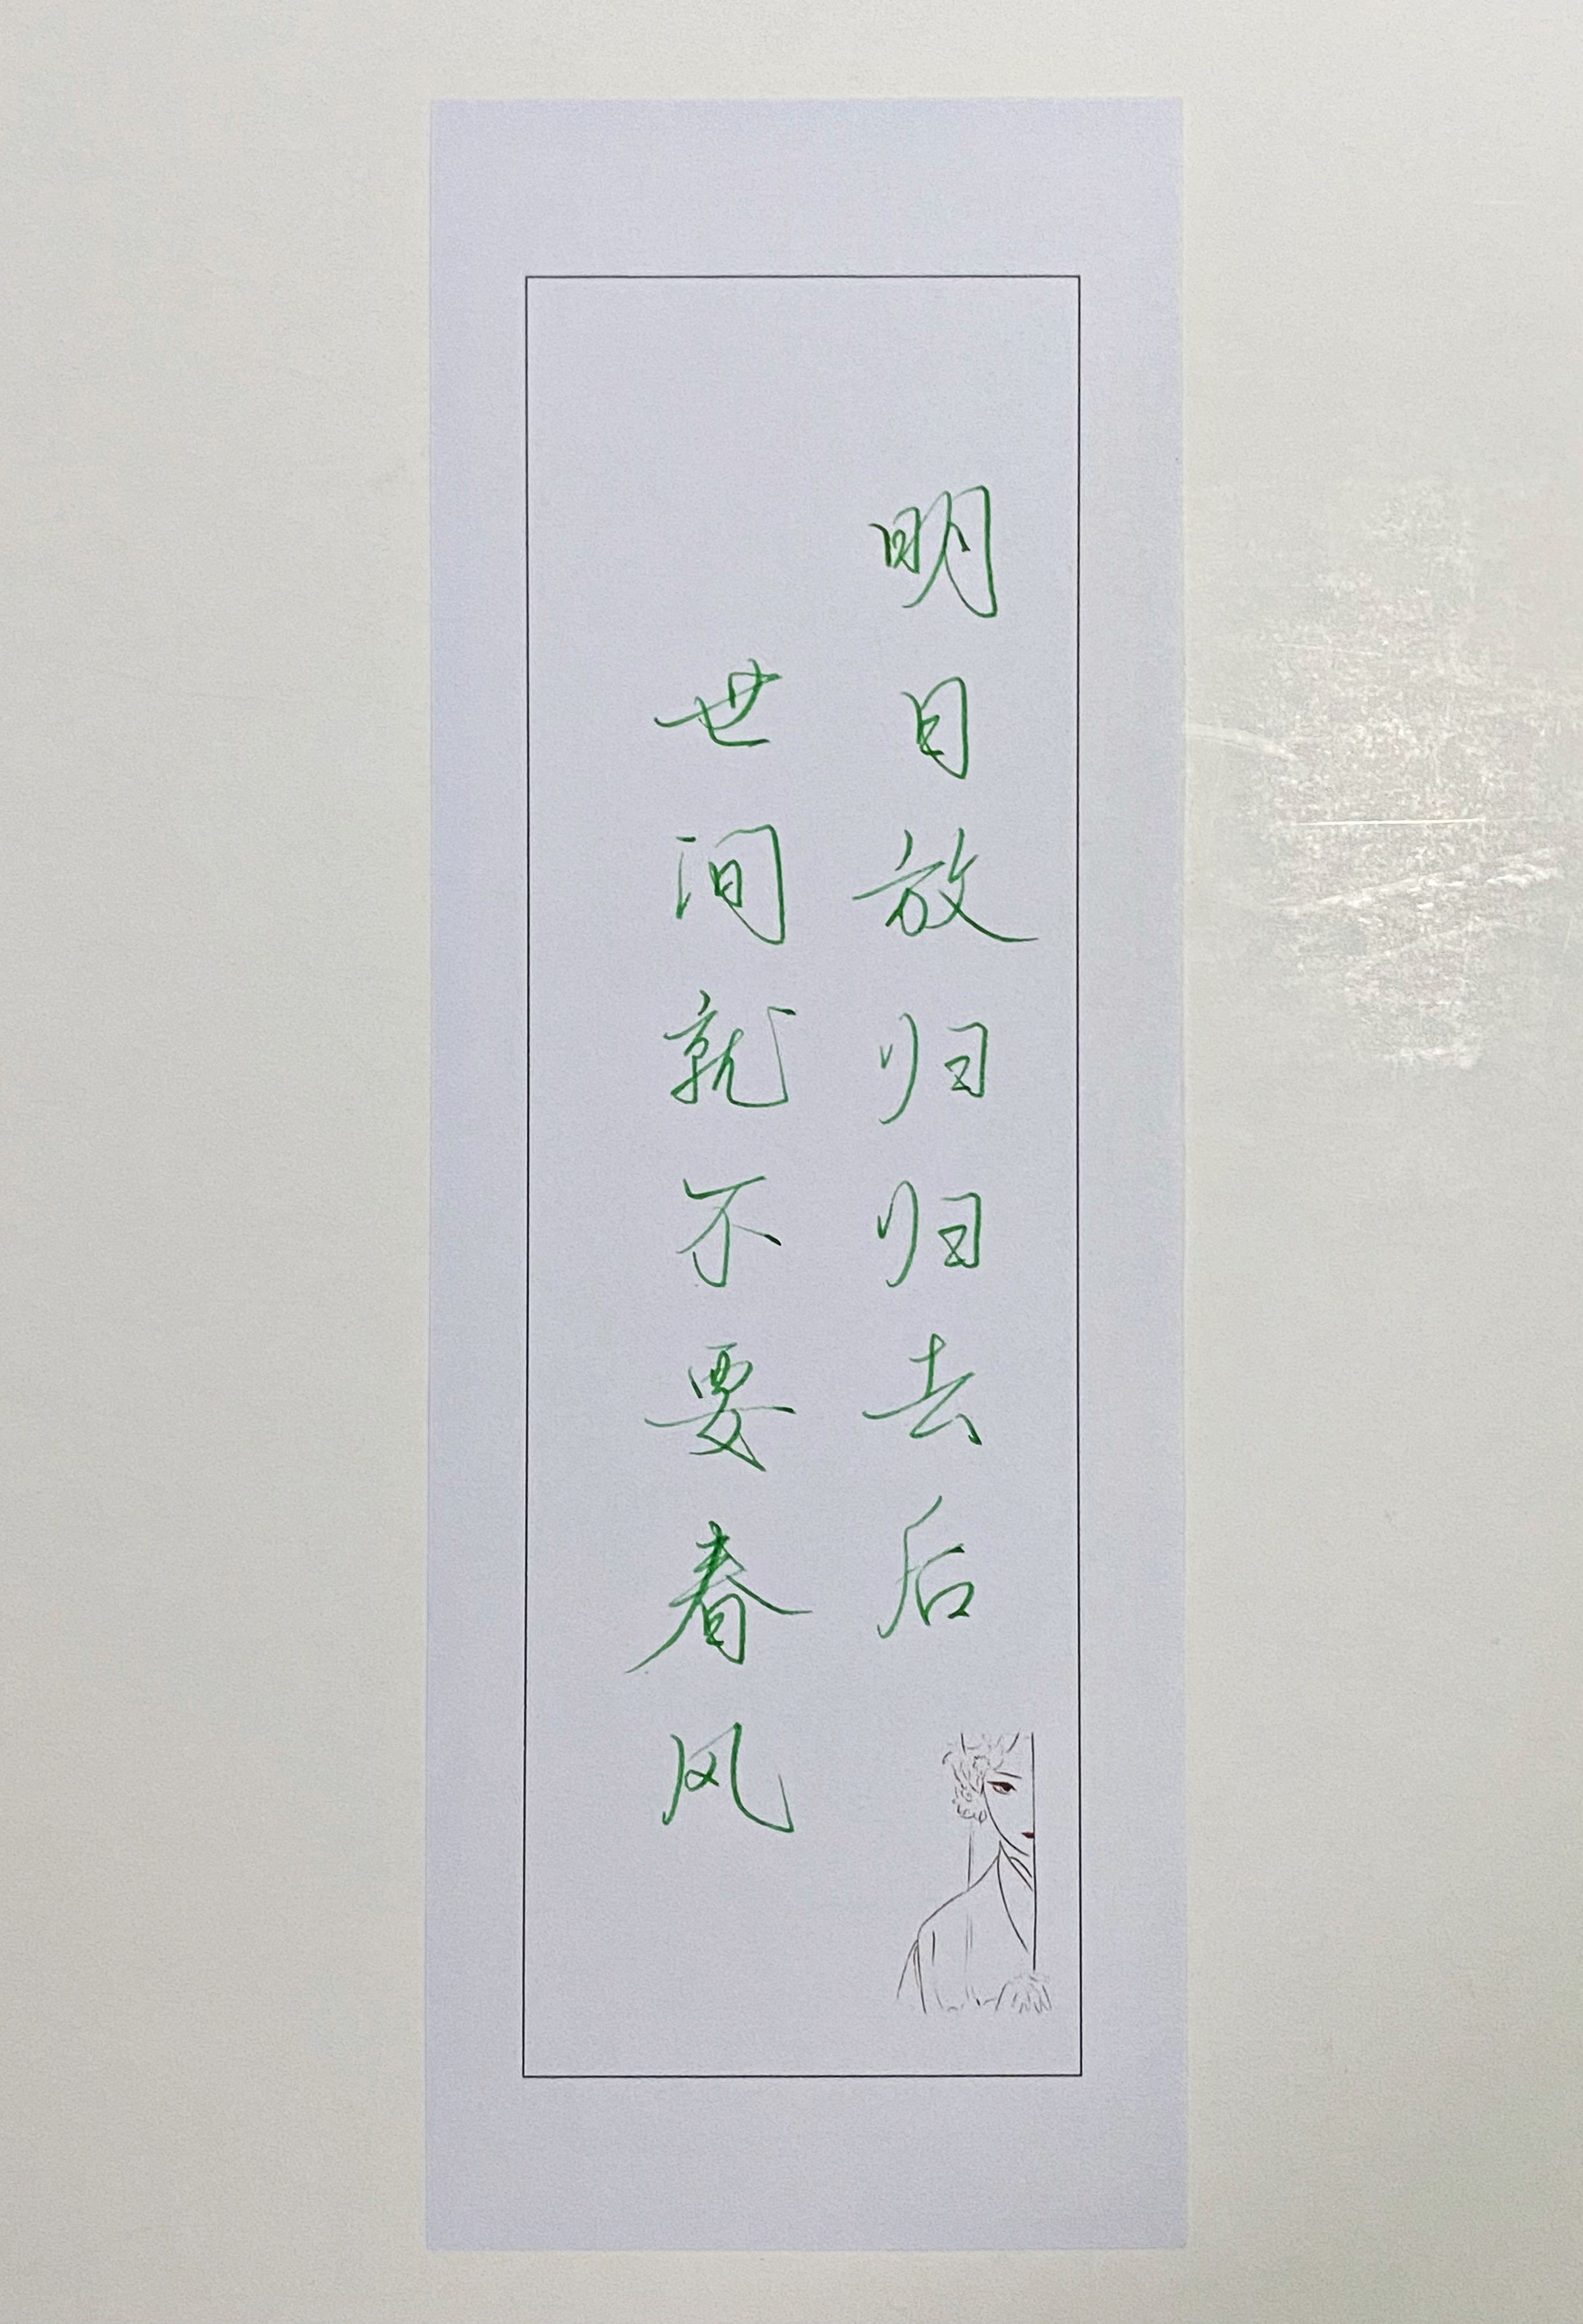 明日放归归去后
世间就不要春风